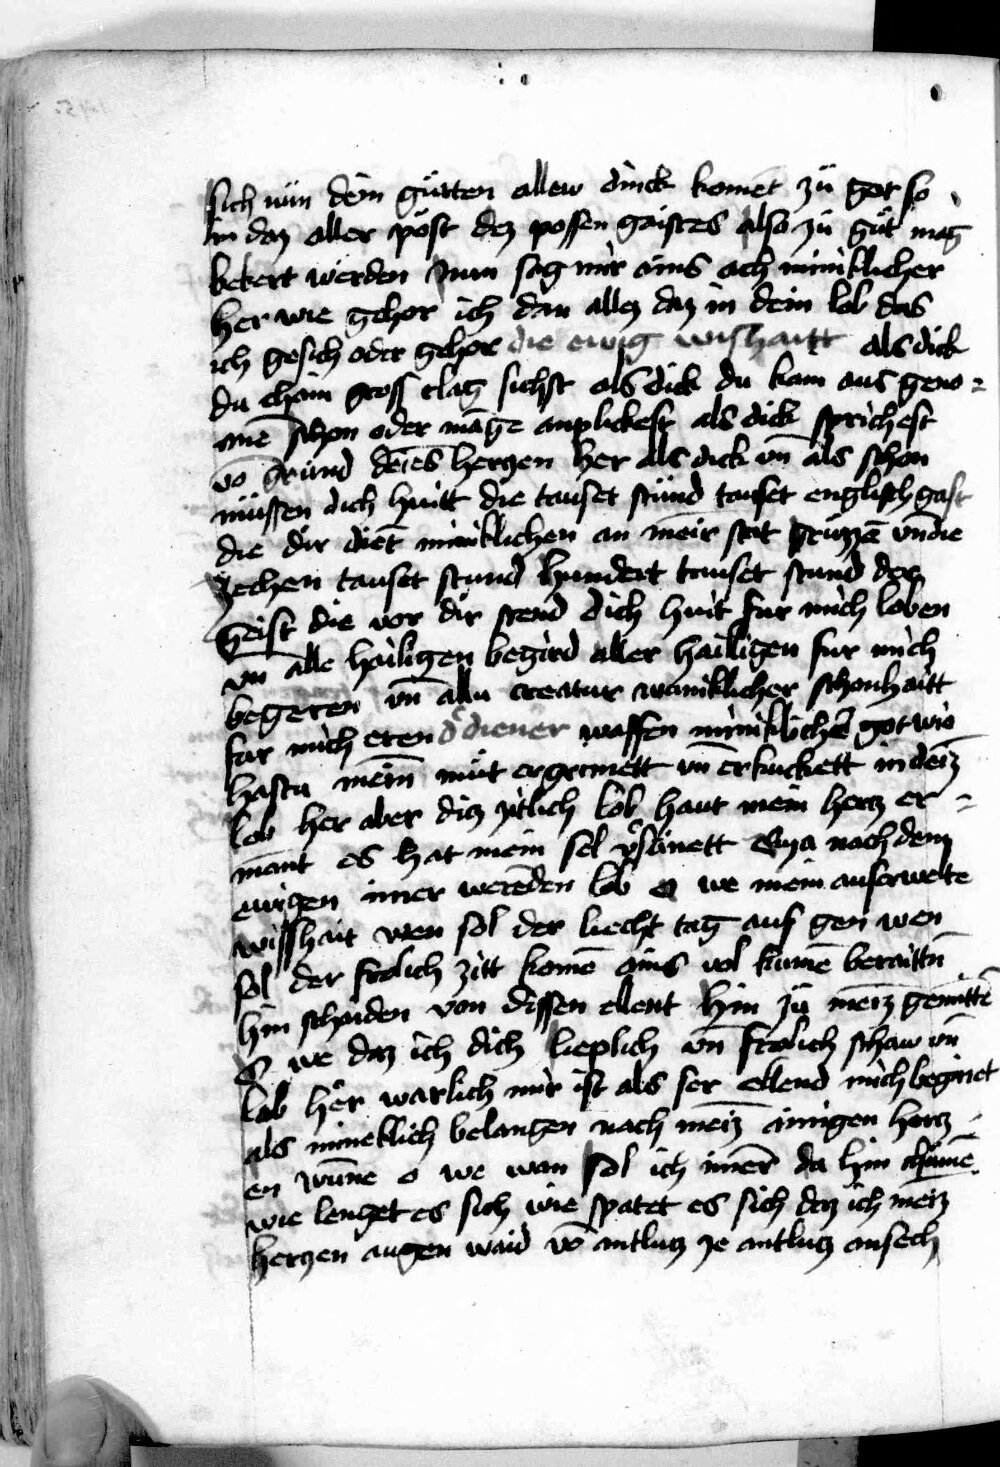 sich nün dein gütten allew dinck komēt zü got so
im daz aller pöst dez possen gaistes also zü güt mag
bekert werden Nun sag mir ains ach miniklicher
her wie gehor ich dan allez daz in dein lob das
ich gesich oder gehor die ewig wishaitt als dick
du chain gross clag sichst als dick du kam aus geno=
mē schon oder māge anplickest als dick sprichest
vō grund deīes herczen her als dick vn̄ als schon
müssen dich huitt die tauset stund tauset englisch gaist
die dir diēt miniklichen an meir stat grüzzē vn̄ die
zechen tauset stund hundert tauset stund der
geist die vor dir stend dich huit fur mich loben
vn̄ alle hailigen begird aller hailigen fur mich
begeren vn̄ allu creatur waniklicher schonhaitt
fur mich eren d diener waffen miniklichē got wie
hastu mein müt ergeczmett vn̄ erkuckett in deiz
lob her aber diz zitlich lob haut mein hercz er=
mant es hat mein sel vsenett Eya nach dem
ewigen imer werēden lob o we mein auserwelte
wisshait wen sol der liecht tag auf gen wen
sol der frolich zitt komē ains vol kumē beraittn
hin schaiden von dissen ellent hin zü meiz gemitte
O we daz ich dich lieplich vn̄ frolich schaw vn̄
lob her warlich mir ist als ser ellend mich beginet
als mineklich belangen nach meiz ainigen hercz=
en wūne o we wan sol ich imer da hin chumē
wie lenget es sich wie spatet es sich daz ich meiz
herczen augen waid vō antlucz ze antlucz ansech